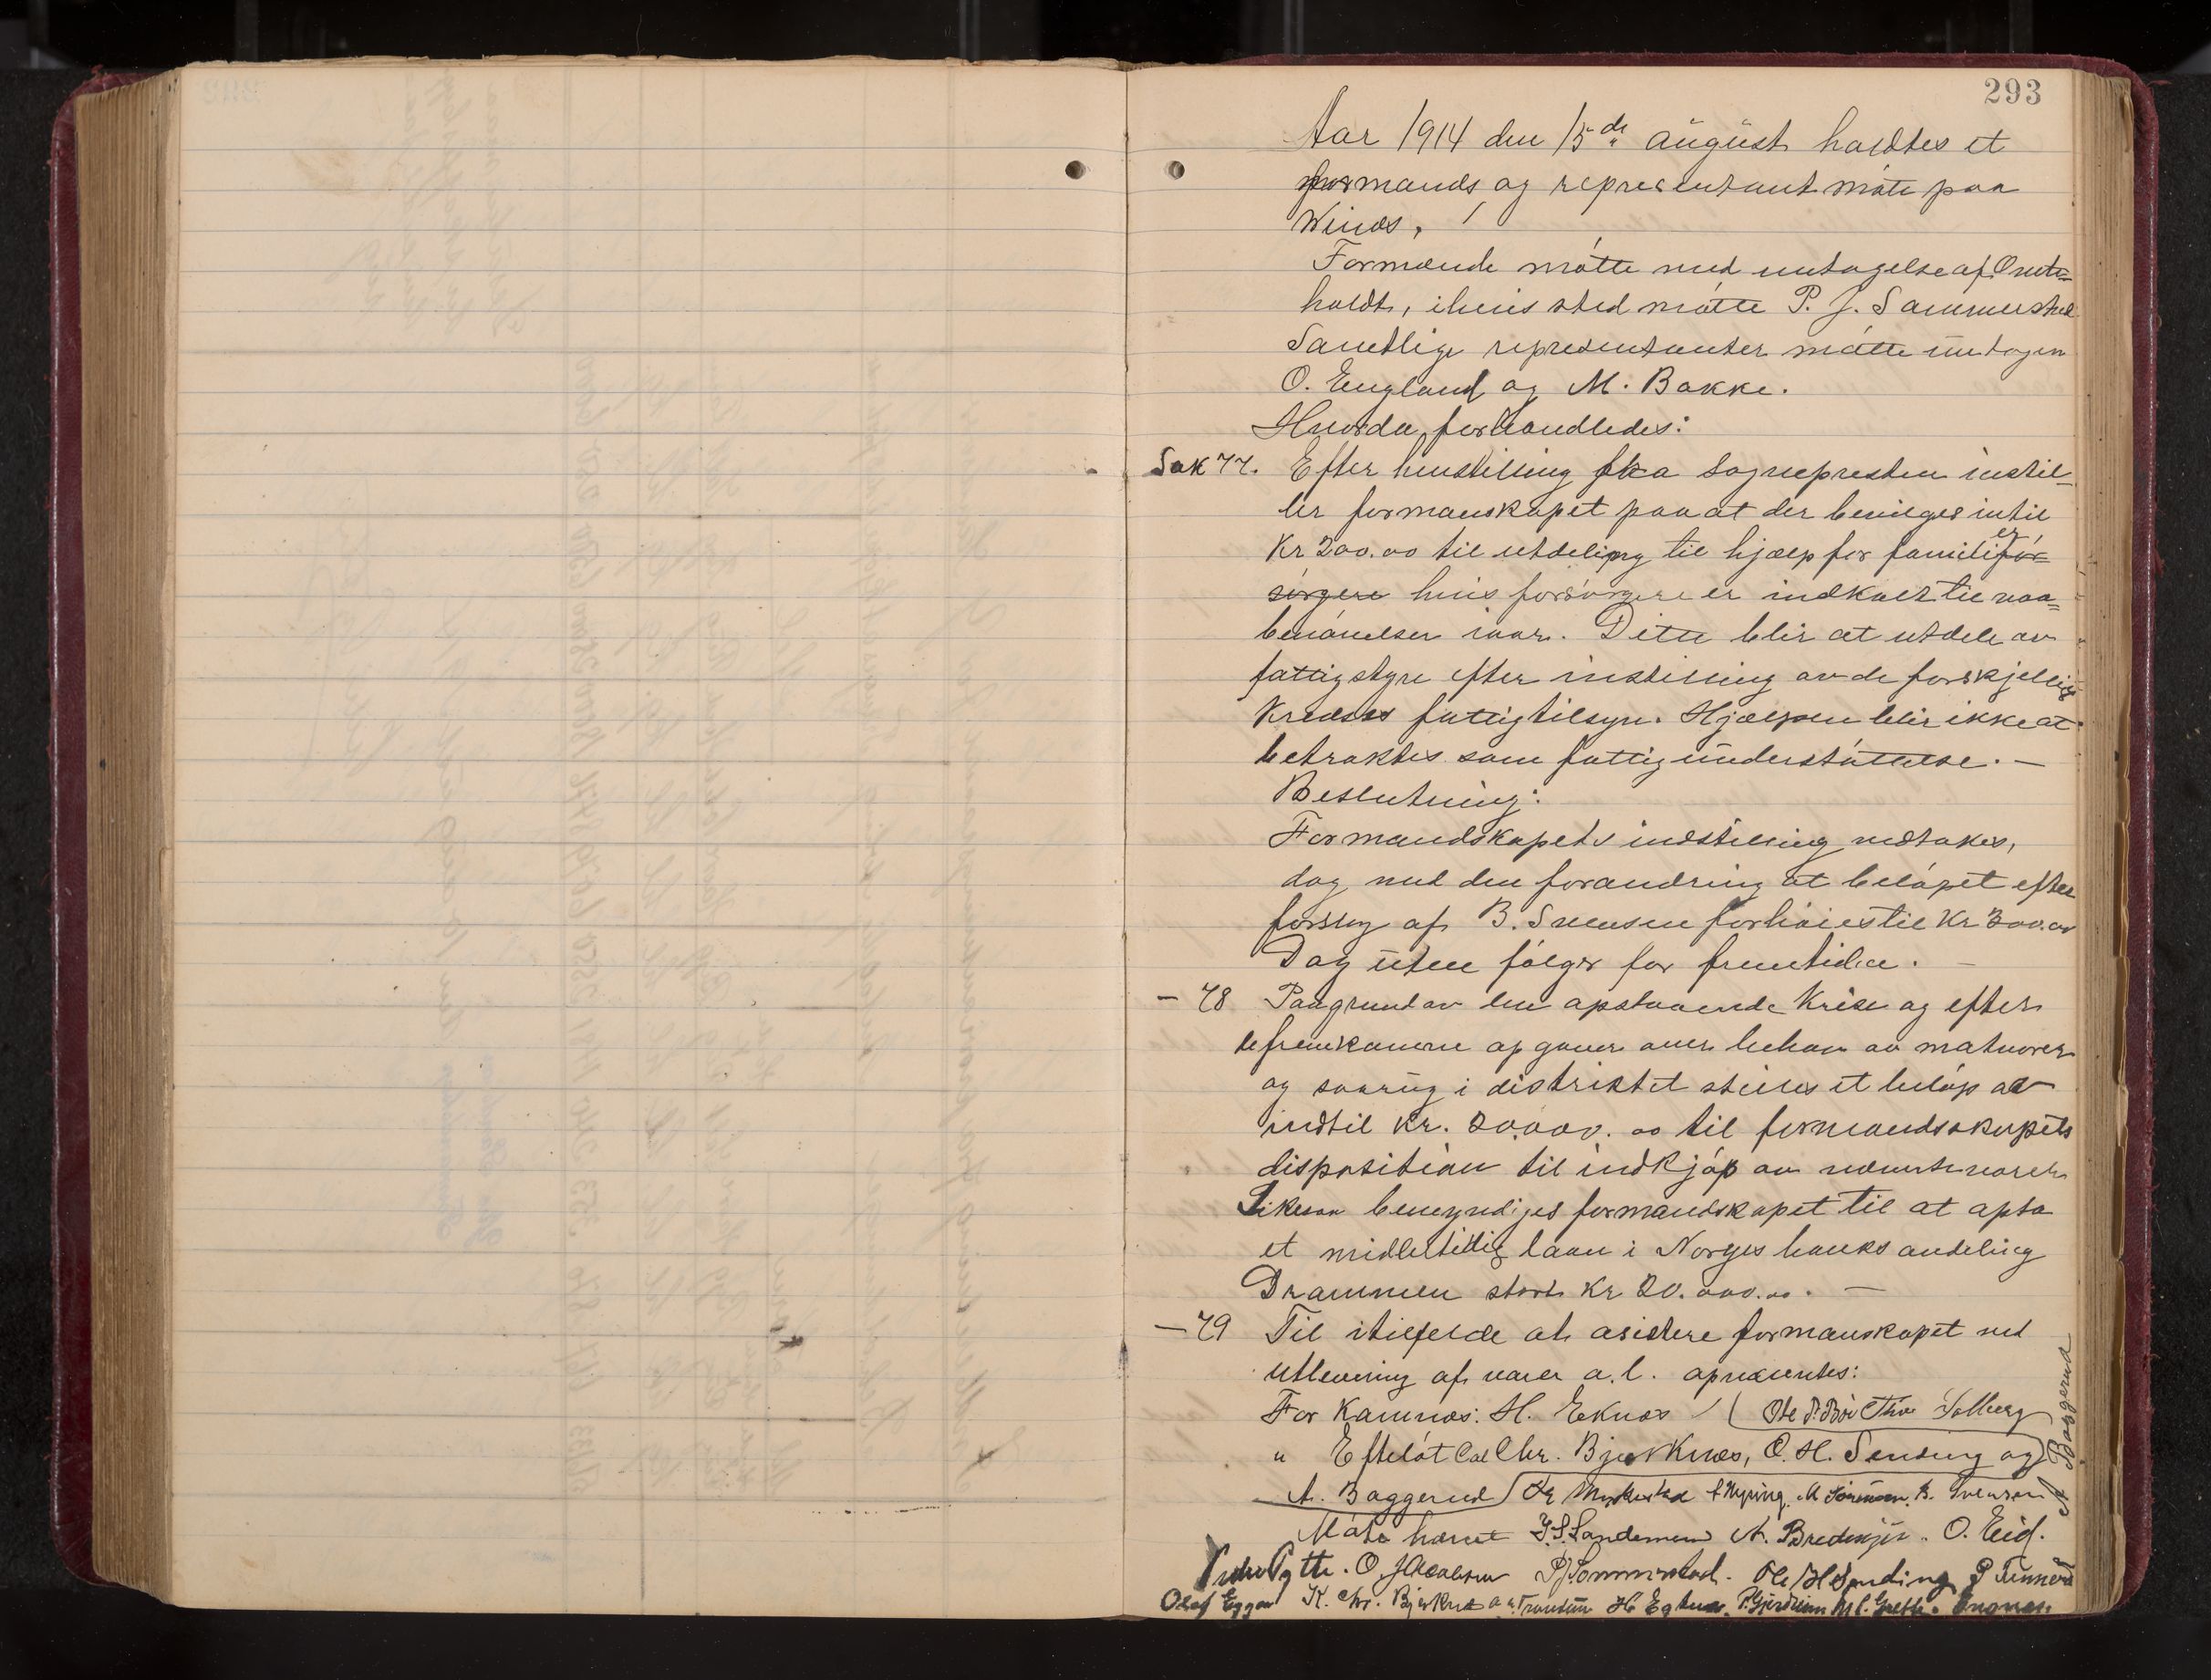 293
Aar 1914 den 15de august holdtes et
formands og representant møte paa
Winæs,
Formænde møtte med untagelse af Omte=
holdt, ihvis sted møtte P. J. Sammerstad
Samtlige representanter møtte untagen
O. Engeland og M. Bakke.
Hvorda forhandledes:
Sak 77. Efter henstilling fra Sognepresten instil-
ler formanskapet paa at der bevilges intil
Kr 200.00 til utdeling til hjælp for familier
før=
sørgere hvis forsørgere er indkalt til vaa=
benøvelser iaar. Dette blir at utdele av
fattigstyre efter instilling av de forskjellige
Kredses fattigtilsyn. Hjælpen blir ikke at
betraktes som fattigunderstøttelse. —
Beslutning:
Formandskapets indstilling vedtakes,
dog med den forandring at beløpet efter
forslag af B. Svensen forhøies til Kr 300.00
Dog uten følger for fremtiden. —
— 78 Paagrund av den opstaaende Krise og efter
de fremkomne opgaver over behov av matvarer
og saavug i distriktet stilles et beløp av
indtil Kr. 20.000.00 til formandsskapets
disposition til indkjøp av nævnte varer
Likesaa bemyndiges formandskapet til at opta
et midlertidig laan i Norges banks avdeling
Drammen stort Kr 20.000.00. —
— 79 Til itilfelde at asistere formanskapet ved
utlevering af varer a.l. opnævntes:
For Komnæs: H. Eknæs Ole P. Bøe Thv Solberg
" Efteløt Cal Chr. Bjerknæs, O. H. Sending og
A. Baggerud M Sørensen. B. Svensen
A Baggerud
Møte hævet J. S. Sandemen A. Bredesen. O. Eid.
O. Jacobsen P J Sommerstad. Ole H Sending
Olaf Eggen K. Chr. Bjerknæs H Eknæs.